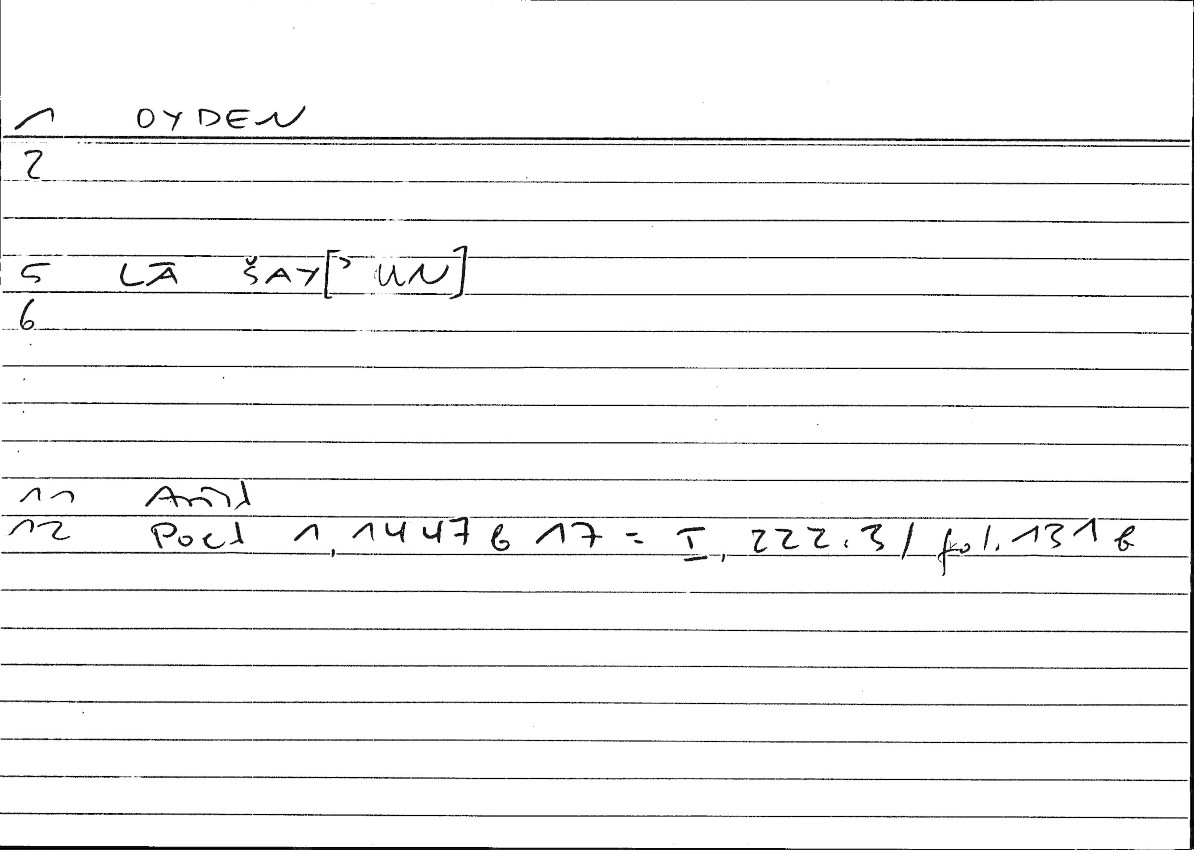 1 OYDEN
2
5 LĀ ŠAY[ʾ UN]
6
11
12 Poet 1, 1447 b 17 = I, 222.3 / fol. 131 b